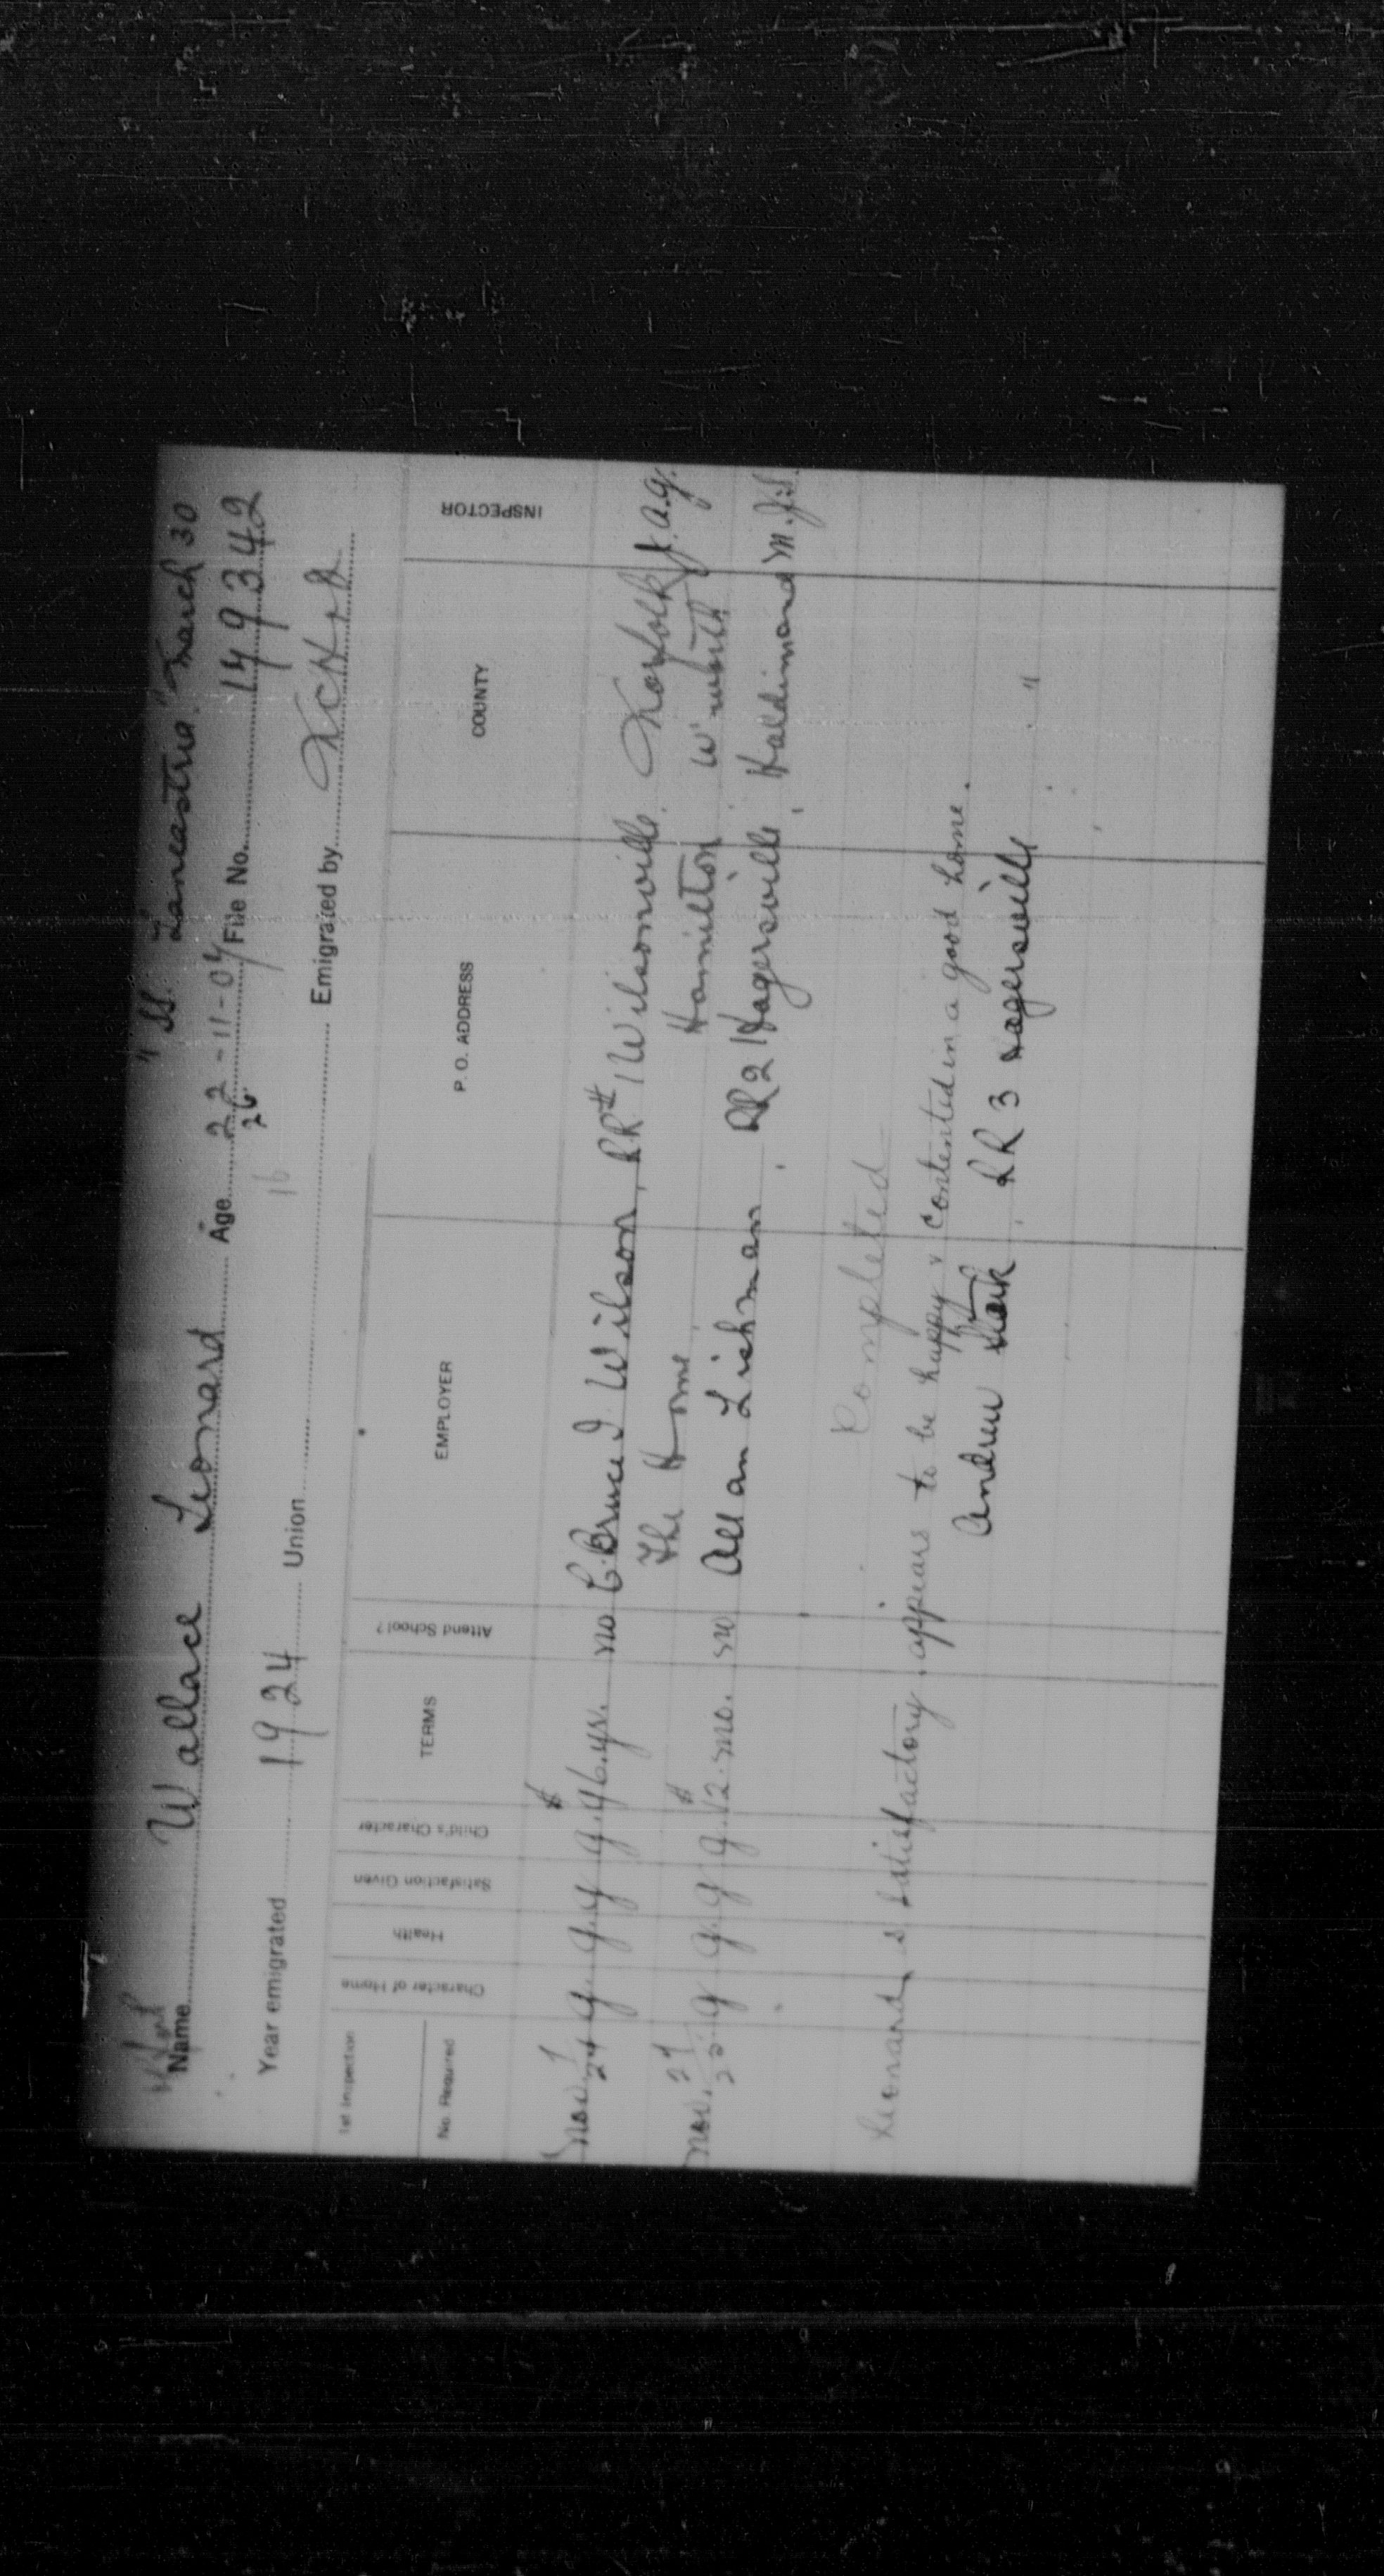 "SS. Lancastria" March 30
Name Wallace Leonard Age 22-11-07 File No. 149342
26
16
Year emigrated 1924 Union Emigrated by NCH&O
1st Inspection No. Required Character of Home Health Satisfaction Given Child's Character TERMS Attend School? EMPLOYER P. O. ADDRESS COUNTY INSPECTOR
Nov. 1/24 g. g. g g. $96.yr. no C. Bruce I. Wilson, RR# 1 Wilsonville. Norfolk J.A.G.
The Home Hamilton W'worth
Nov. 27/25. g g. g g. $12.mo. no Allan Lishman RR 2 Hagersville Haldimand M.J.S.
Completed
Leonard is satisfactory. appears to be happy & contented in a good home.
Andrew Hark RR 3 Hagersville "